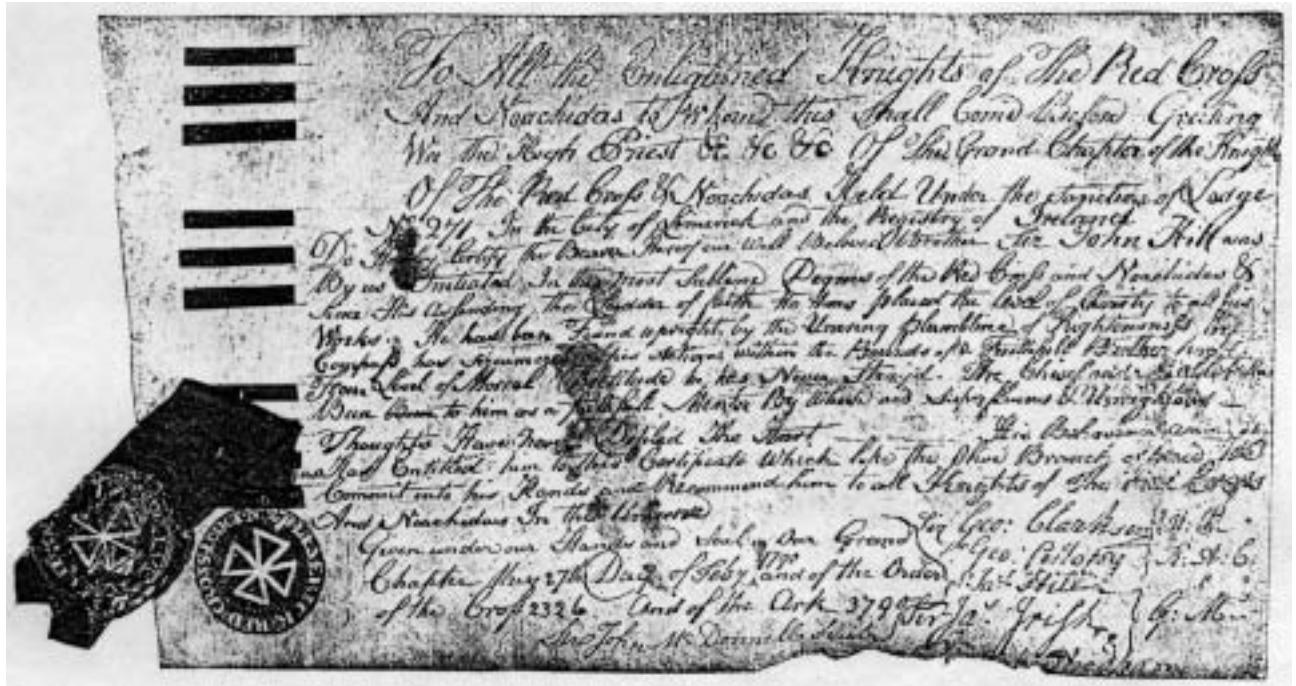 To All the Enlightned Knights of The Red Cross
And Noachidas to Whome this Shall Come Before Greeting
Wee the High Priest &c &c &c Of The Grand Chapter of the Knights
Of The Red Cross & Noachidas Held Under the Sanction of Lodge
No 271 In the City of Limerick and the Registry of Ireland
Do Hereby Certify the Bearer thereof our Well Beloved Brother Sir John Hill was
By us Initiated In the most Sublime Degrees of the Red Cross and Noachidas &
Since His Assending the Ladder of faith He Has placed the level of Charity to all his
Works He has been Found upright by the Unering Plumbline of Righteousness
Compass has his Actions within the Bounds of a Faithfull Brother
Level of Morral Rectitude he has Never Strayd. The Chisel and
Been to him as a faithfull Mentor By Which
Thoughts Have Never Defiled The Heart
Has Entitled him to this Certificate Which like the Olive Branch of Peace Wee
Commit into his Hands and Recommend him to all Knights of the Red Cross
And Noachidas In the Universe
Given under our Hands and Seal in Our Grand
Chapter this 27th Day of Feby 1790 and of the Order
of the Cross 2326 And of the Ark
Sir John McDonnell
Sir Geo: Clarkson H. P.
Sr Geo: R. A. C.
Sir Jas. Irish G: M